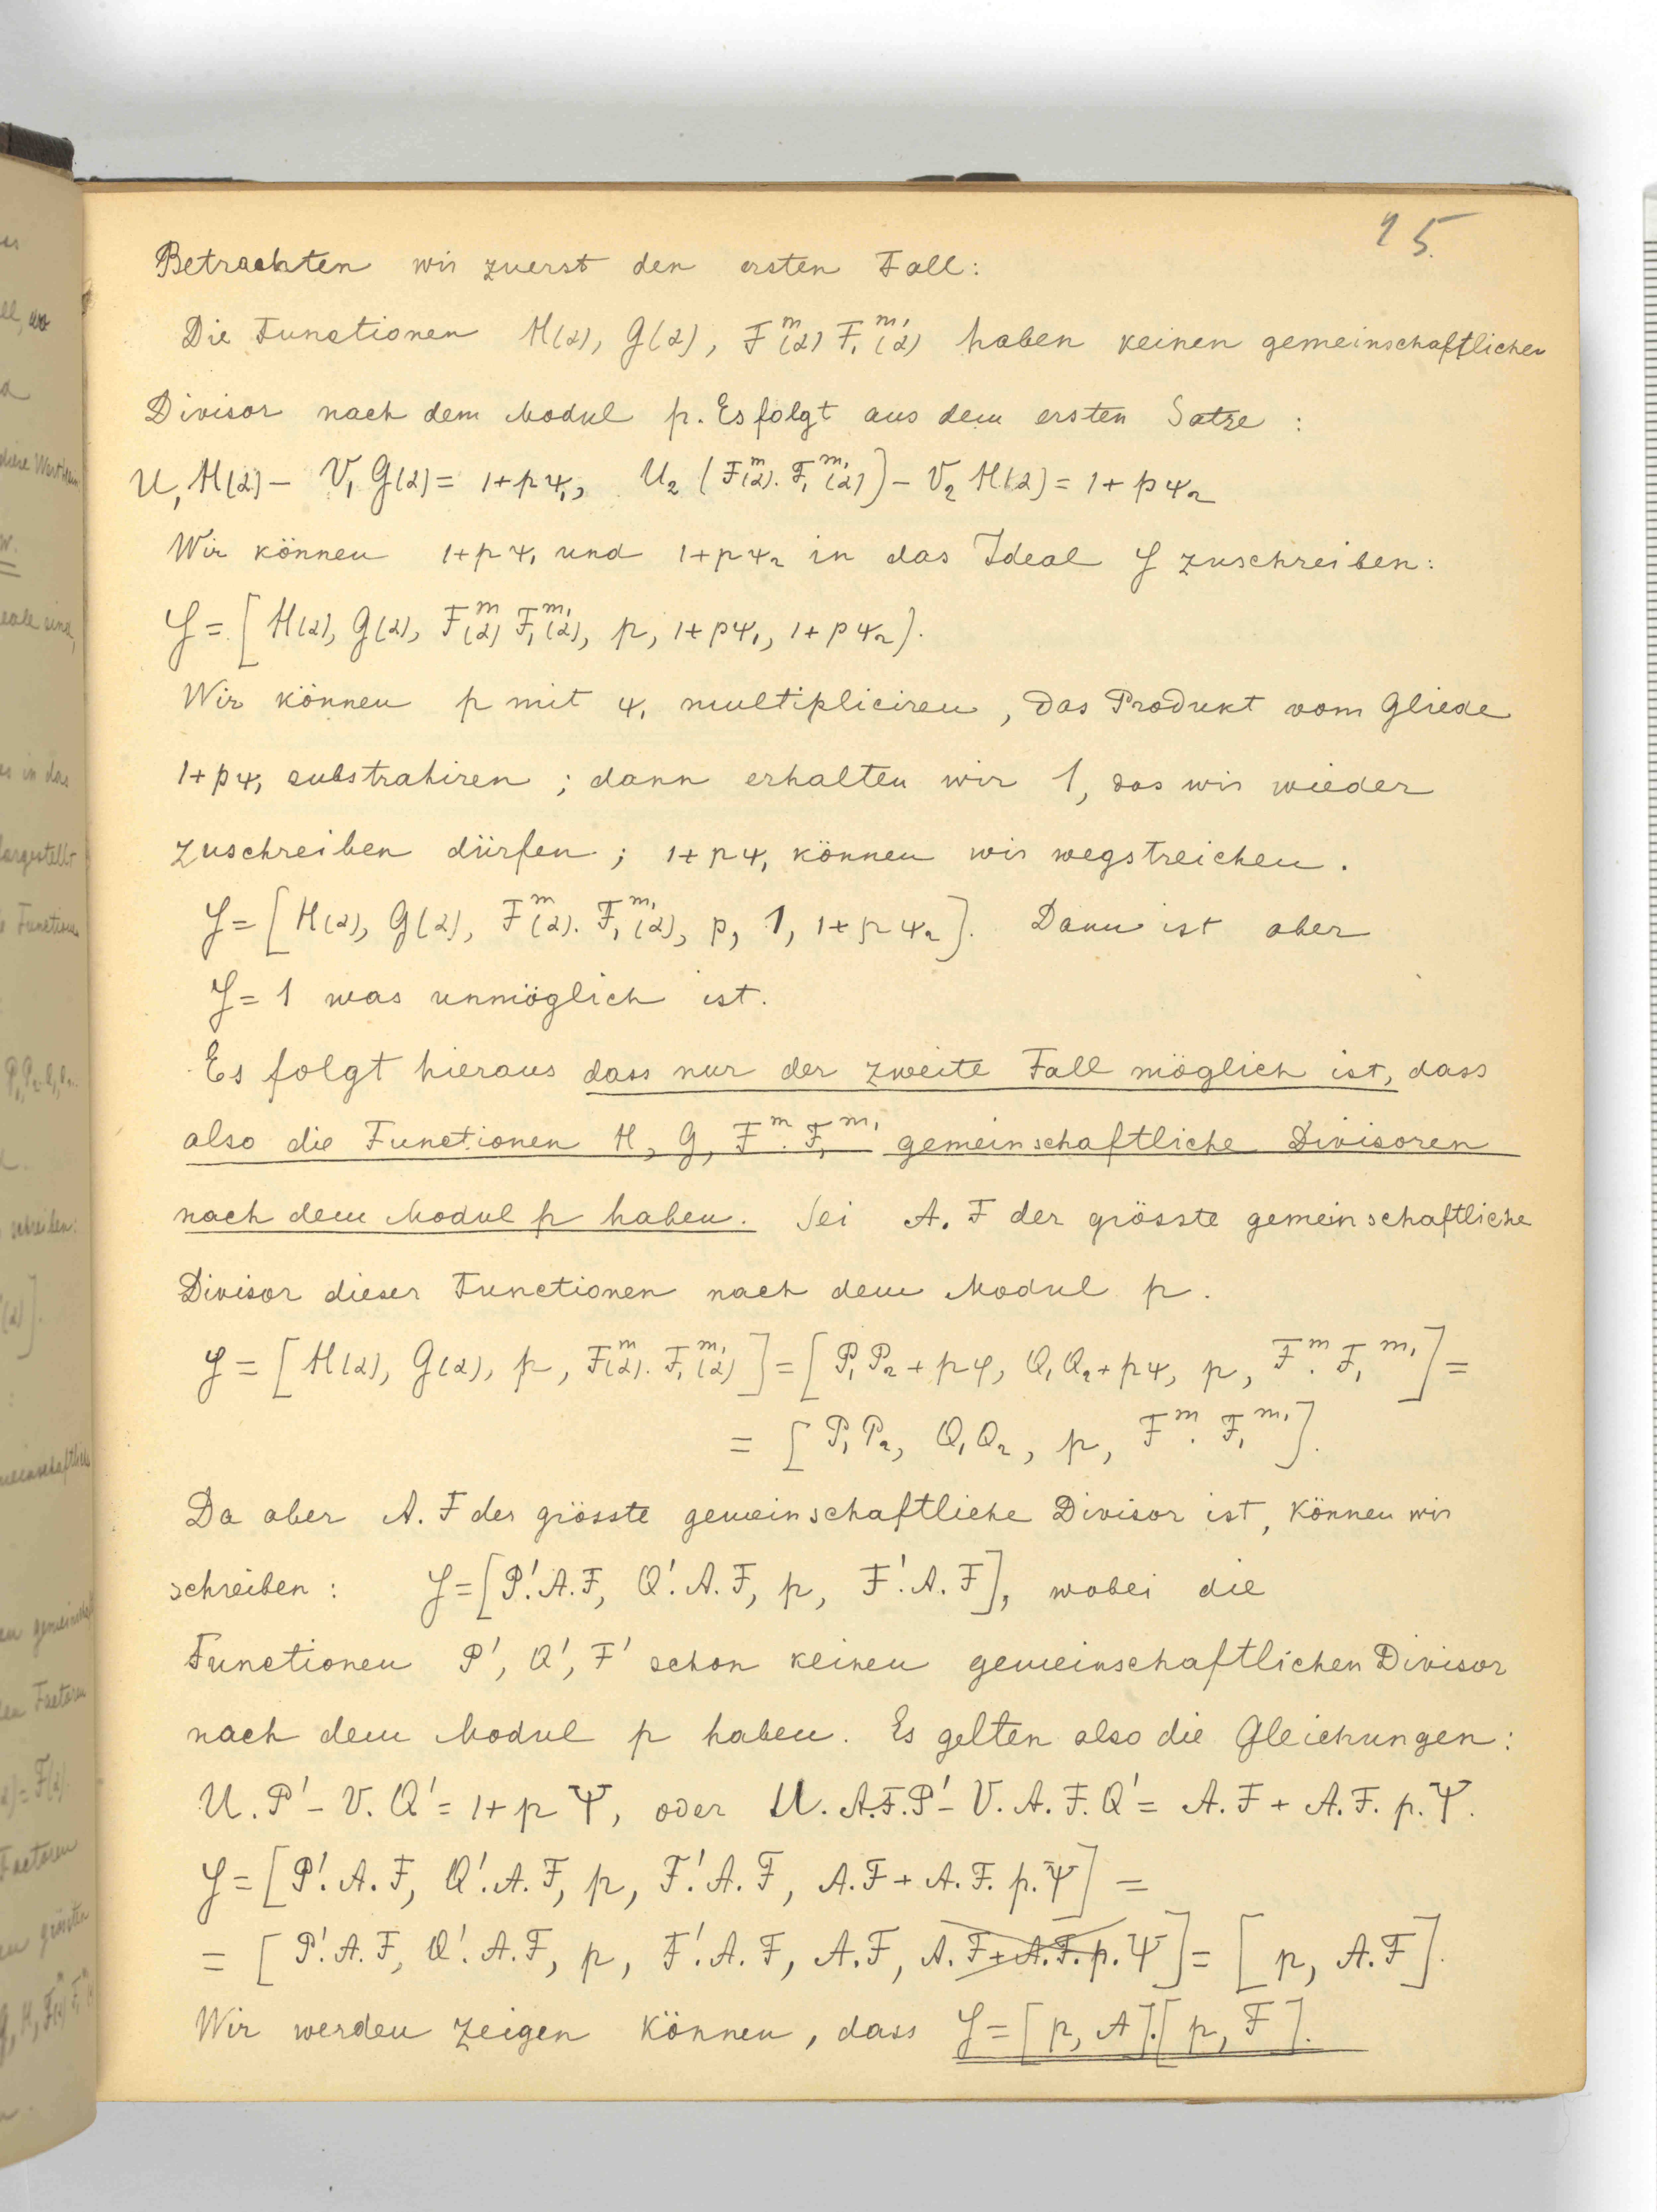 15.
Betrachten wir zuerst den ersten Fall:
Die Functionen H(α), G(α), F^m(α) F₁^m₁(α) haben keinen gemeinschaftlichen
Divisor nach dem Modul p. Es folgt aus dem ersten Satze :
U₁ H(α) – V₁ G(α) = 1+pψ₁, U₂ (F^m(α). F₁^m₁(α)) – V₂ H(α) = 1+pψ₂
Wir können 1+pψ₁ und 1+pψ₂ in das Ideal J zuschreiben:
J = [H(α), G(α), F^m(α) F₁^m₁(α), p, 1+pψ₁, 1+pψ₂].
Wir können p mit ψ₁ multipliciren, das Produkt vom Gliede
1+pψ₁ substrahiren ; dann erhalten wir 1, das wir wieder
zuschreiben dürfen ; 1+pψ₁ können wir wegstreichen .
J = [H(α), G(α), F^m(α). F₁^m₁(α), p, 1, 1+pψ₂]. Dann ist aber
J = 1 was unmöglich ist.
Es folgt hieraus dass nur der zweite Fall möglich ist, dass
also die Functionen H, G, F^m. F₁^m₁ gemeinschaftliche Divisoren
nach dem Modul p haben. Sei A. F der grösste gemeinschaftliche
Divisor dieser Functionen nach dem Modul p .
J = [H(α), G(α), p, F^m(α). F₁^m₁(α)] = [P₁P₂+pφ, Q₁Q₂+pψ, p, F^m. F₁^m₁] =
= [P₁P₂, Q₁Q₂, p, F^m. F₁^m₁].
Da aber A. F der grösste gemeinschaftliche Divisor ist, können wir
schreiben : J = [P'.A.F, Q'.A.F, p, F'.A.F], wobei die
Functionen P', Q', F' schon keinen gemeinschaftlichen Divisor
nach dem Modul p haben. Es gelten also die Gleichungen :
U.P' – V.Q' = 1+pΨ, oder U.A.F.P' – V.A.F.Q' = A.F + A.F.p.Ψ.
J = [P'.A.F, Q'.A.F, p, F'.A.F, A.F + A.F.p.Ψ] =
= [P'.A.F, Q'.A.F, p, F'.A.F, A.F, A.F+A.F.p.Ψ] = [p, A.F].
Wir werden zeigen können, dass J = [p, A].[p, F].